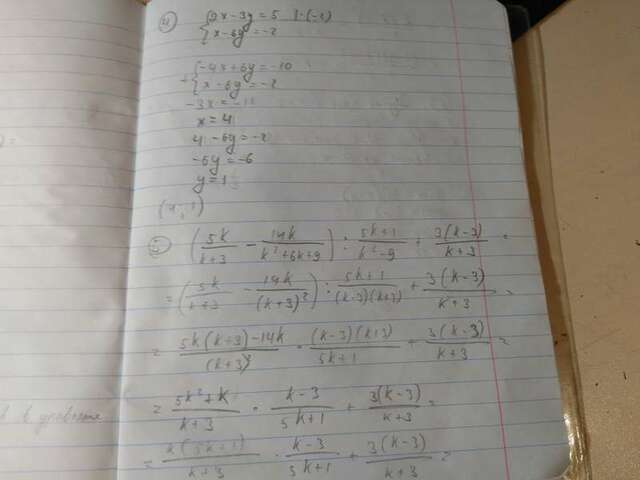 4) {2x-3y=5 |·(-2)
{x-6y=-2
+{-4x+6y=-10
{x-6y=-2
-3x=-12
x=4
4-6y=-2
-6y=-6
y=1
(4,1)
5) (5k/(k+3) - 14k/(k²+6k+9)) : (5k+1)/(k²-9) + 3(k-3)/(k+3) =
= (5k/(k+3) - 14k/(k+3)²) : (5k+1)/((k-3)(k+3)) + 3(k-3)/(k+3) =
= (5k(k+3)-14k)/(k+3)² · (k-3)(k+3)/(5k+1) + 3(k-3)/(k+3) =
= (5k²+k)/(k+3) · (k-3)/(5k+1) + 3(k-3)/(k+3) =
= k(5k+1)/(k+3) · (k-3)/(5k+1) + 3(k-3)/(k+3) =